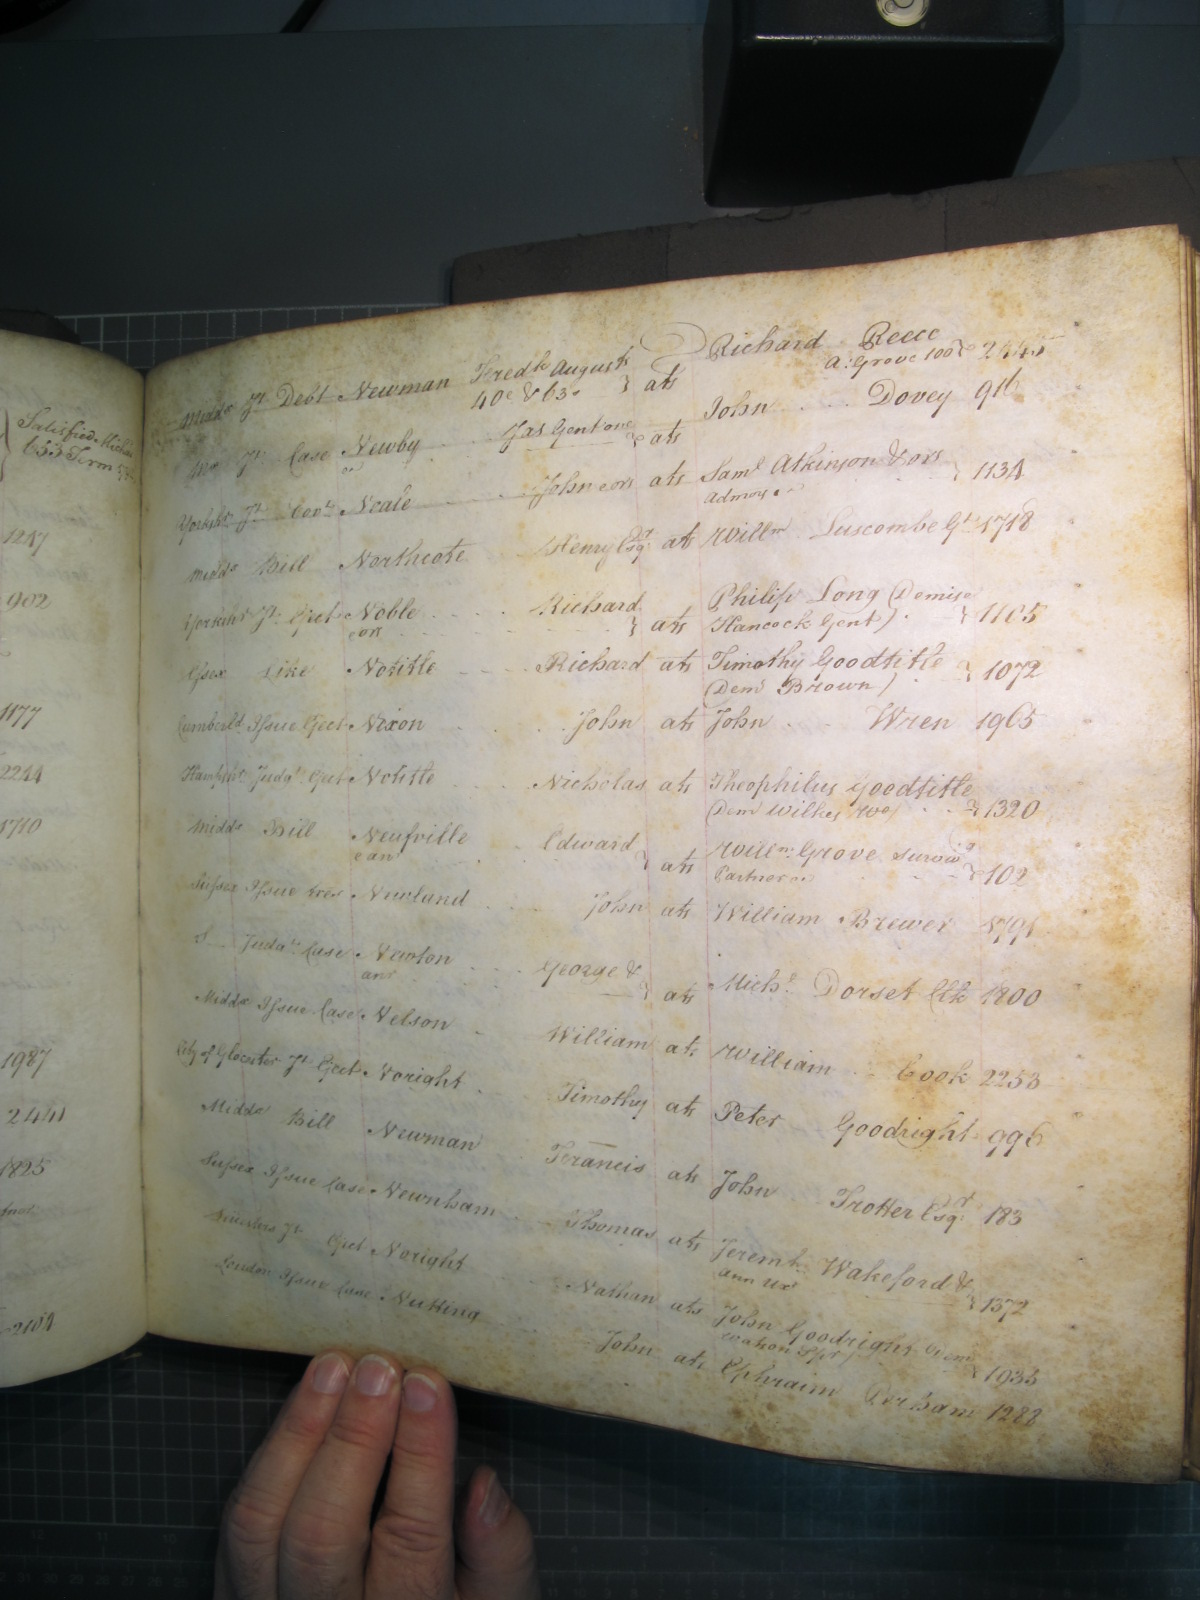 Satisfied Mich
653 Term
1247
902
1177
2244
1710
1987
2440
1825
2104
Midds Jt Debt Newman Fredk August 40s & 63s } ats Richard Reece
A: Grove 100 2445
Jt Case Newby Jas Gent one ats John Dovey 916
Yorksh Jt Covt Neale John & ors ats Saml Atkinson & ors
Admors } 1134
Midds Bill Northcote Henry Esqr at Willm Luscombe Gt 1718
Yorksh Jt Eject Noble Richard } ats Philip Long (Demise
& on Hancock Gent) } 1105
Essex Like Notitle Richard ats Timothy Goodtitle
(Dem Brown) } 1072
Cumberld Issue Eject Nixon John at John Wren 1965
Hampsh Judgt Eject Notitle Nicholas at Theophilus Goodtitle
(Dem Wilkes Wo) } 1320
Midds Bill Neufville Edward } ats Willm Grove surviv
& anr Partner 102
Sussex Issue tres Newland John ats William Brewer 1791
Judgt Case Newton George & } ats Michl Dorset Clk 1800
anr
Midds Issue Case Nelson William ats William Cook 2253
City of Glocester Jt Eject Noright Timothy ats Peter Goodright 996
Midds Bill Newman Francis ats John Trotter Esqr 183
Sussex Issue Case Newnham Thomas ats Jeremh Wakeford &
ann ux } 1372
Jt Eject Noright Nathan ats John Goodright Dem
1033
London Issue Case Nutting John ats Ephraim Perham 1288